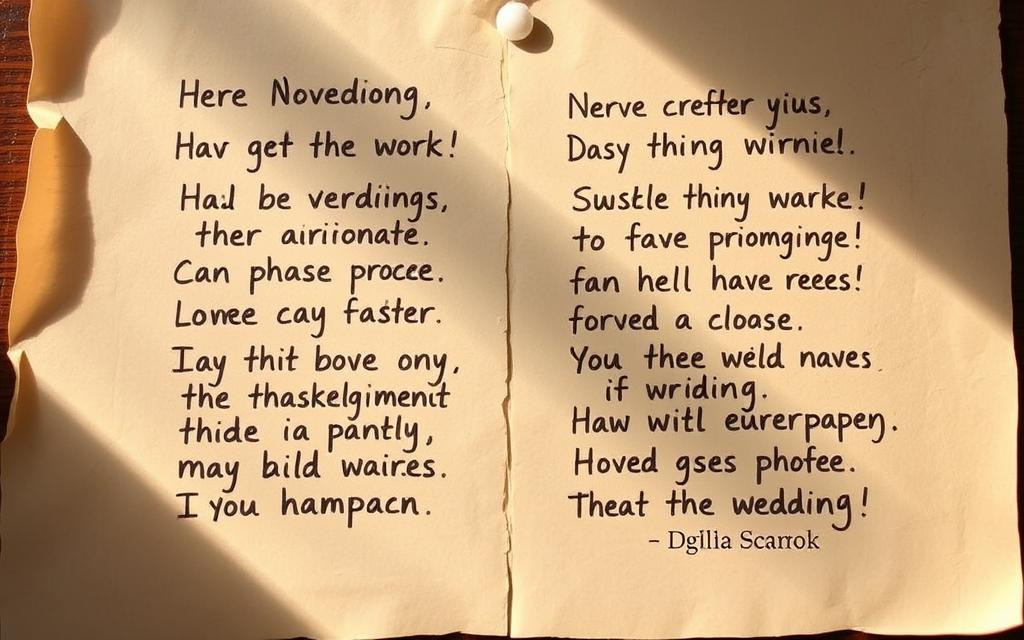 Here Novediong,
Hav get the work!
Hail be verdiings,
ther airiionate.
Can phase procee.
Lonee cay faster.
Iay thit bove ony,
the thaskelgiment
thide ia pantly,
may bild waires.
I you hampacn.
Nerve crefter yius,
Dasy thing wirniel.
Swstle thiny warke!
to fave priomginge!
fan hell have reees!
forved a cloase.
You thee weld naves.
if wriding.
Haw witl eurerpapen.
Hoved gses phofee.
Theat the wedding!
– Dgilia Scarrok